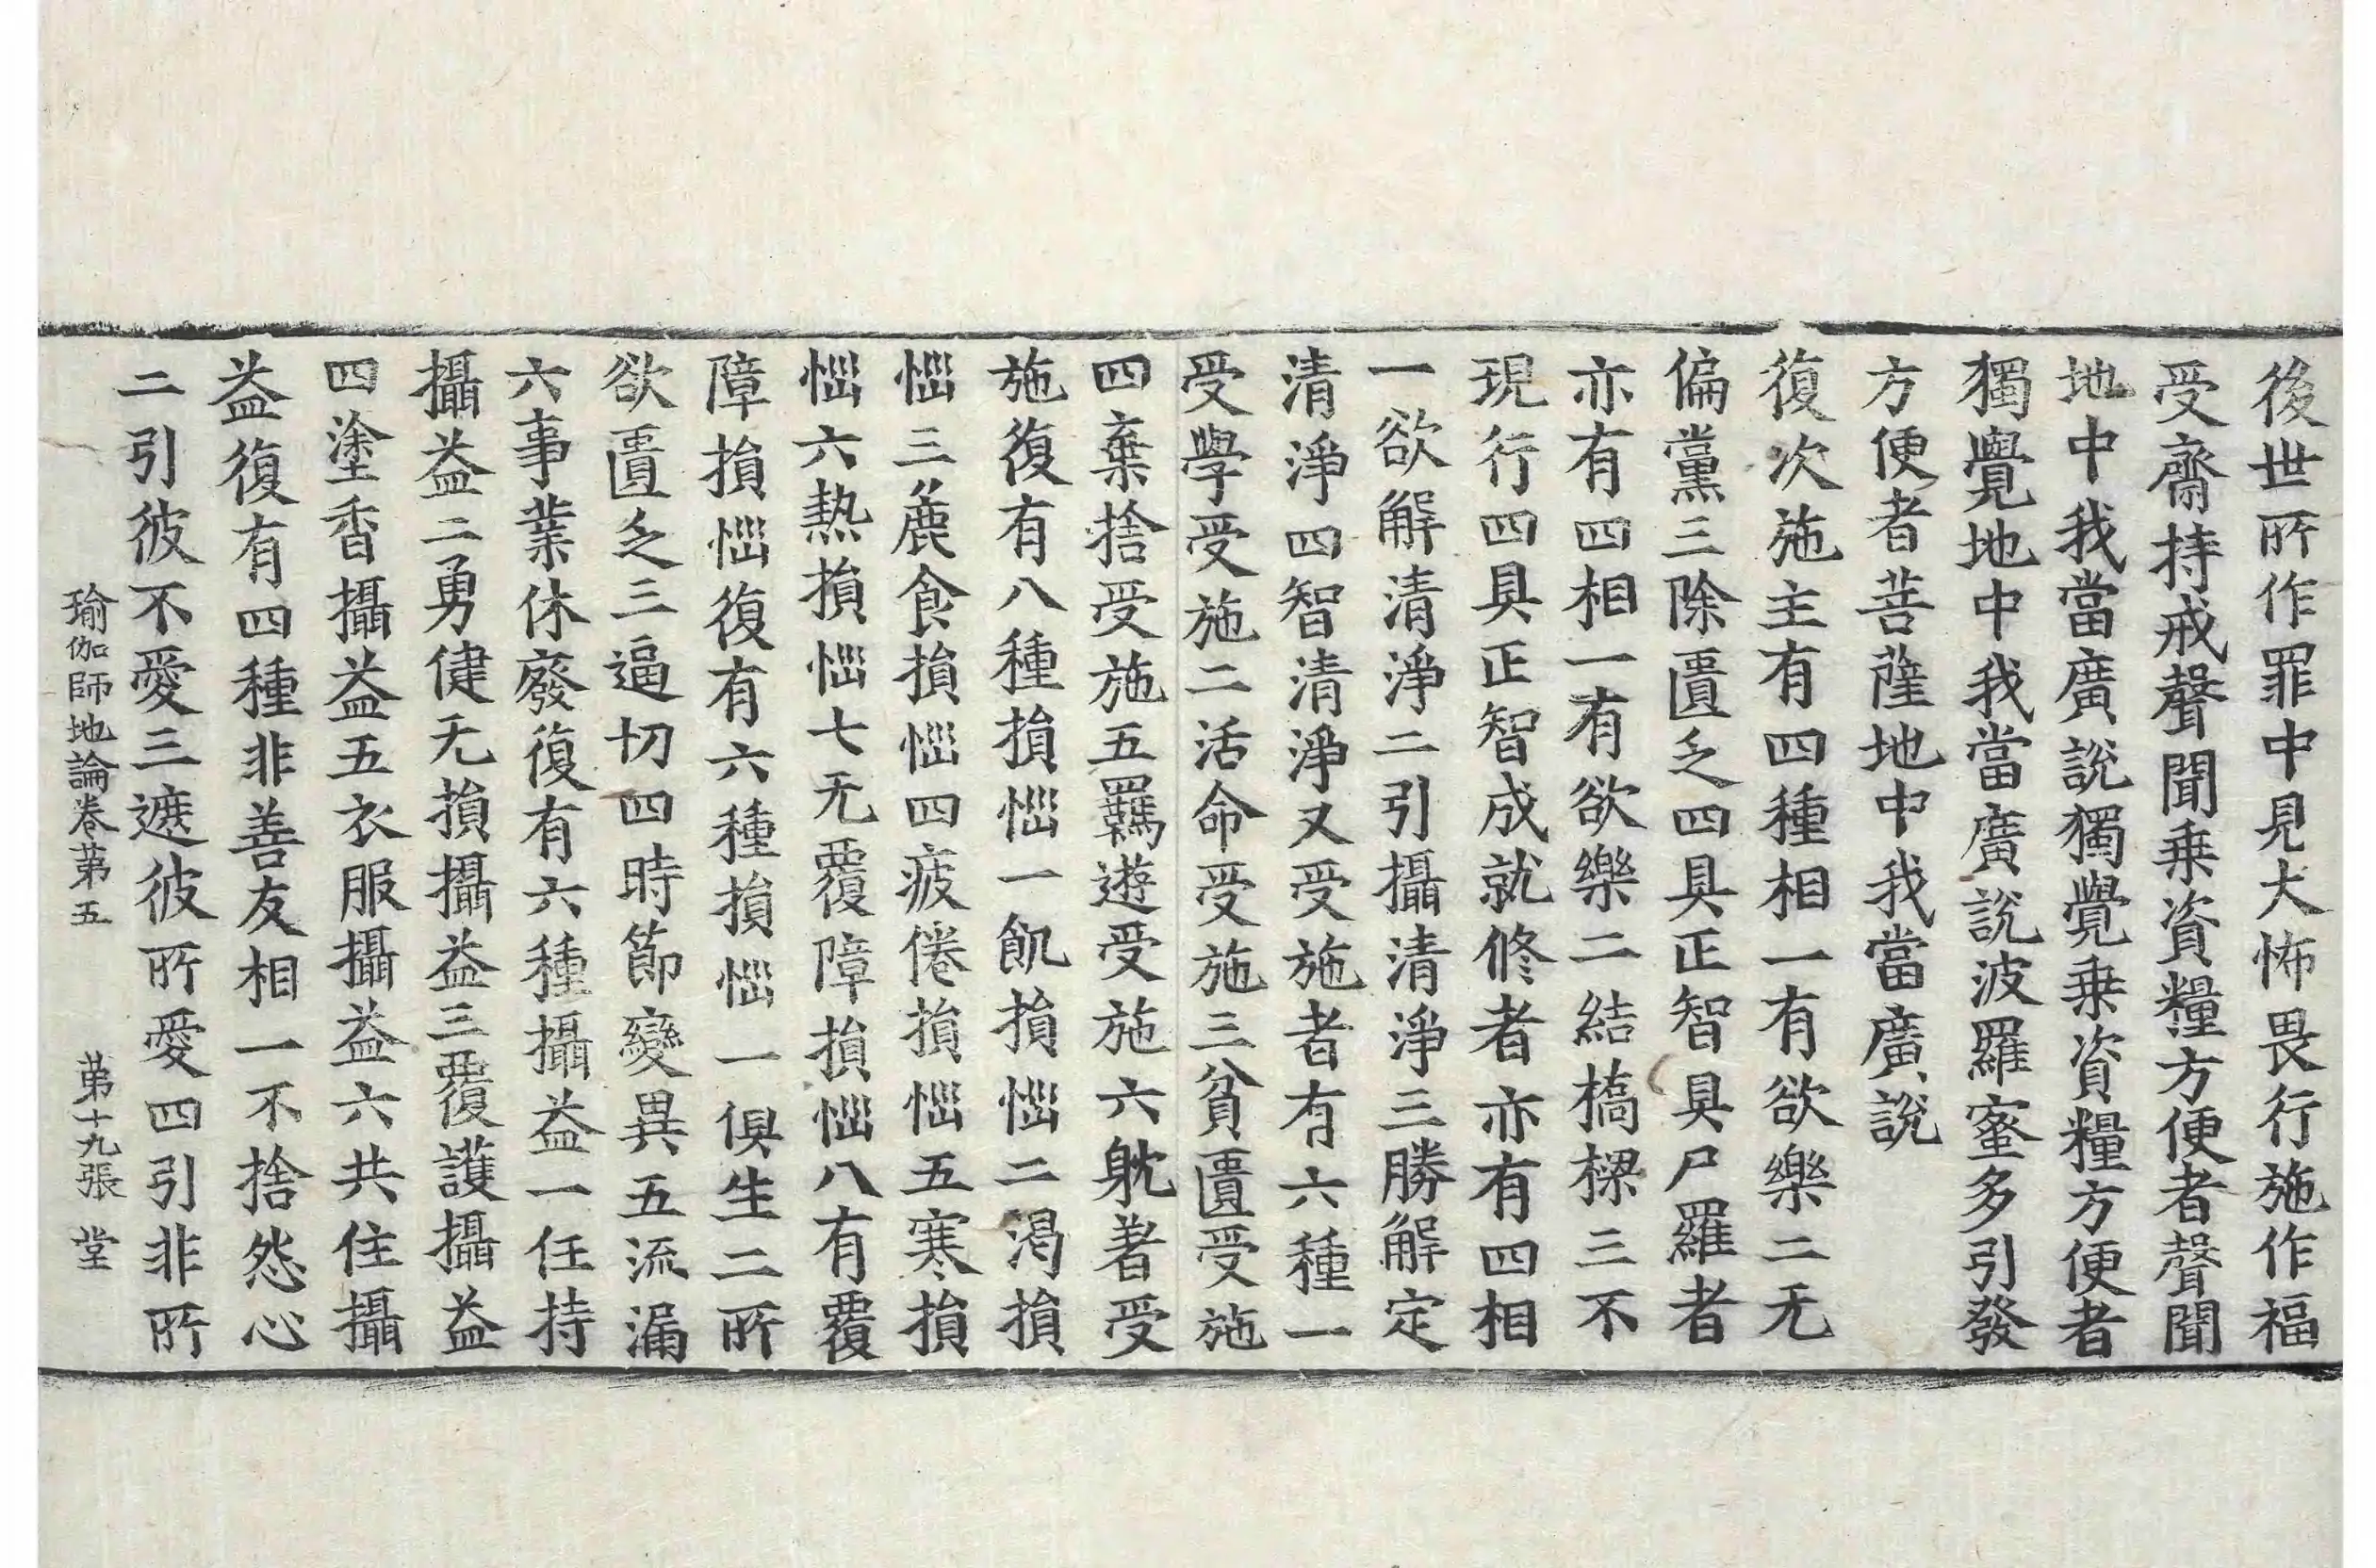 後世所作罪中見大怖畏行施作福
受齋持戒聲聞乗資糧方便者聲聞
地中我當廣說獨覺乗資糧方便者
獨覺地中我當廣說波羅蜜多引發
方便者菩薩地中我當廣說
復次施主有四種相一有欲樂二无
偏黨三除匱乏四具正智具尸羅者
亦有四相一有欲樂二結橋樑三不
現行四具正智成就修者亦有四相
一欲解清淨二引攝清淨三勝解定
清淨四智清淨又受施者有六種一
受學受施二活命受施三貧匱受施
四棄捨受施五羈遊受施六躭著受
施復有八種損惱一飢損惱二渴損
惱三麁食損惱四疲倦損惱五寒損
惱六熱損惱七无覆障損惱八有覆
障損惱復有六種損惱一俱生二所
欲匱乏三逼切四時節變異五流漏
六事業休廢復有六種攝益一任持
攝益二勇健无損攝益三覆護攝益
四塗香攝益五衣服攝益六共住攝
益復有四種非善友相一不捨怨心
二引彼不愛三遮彼所愛四引非所
瑜伽師地論卷苐五 苐十九張 堂